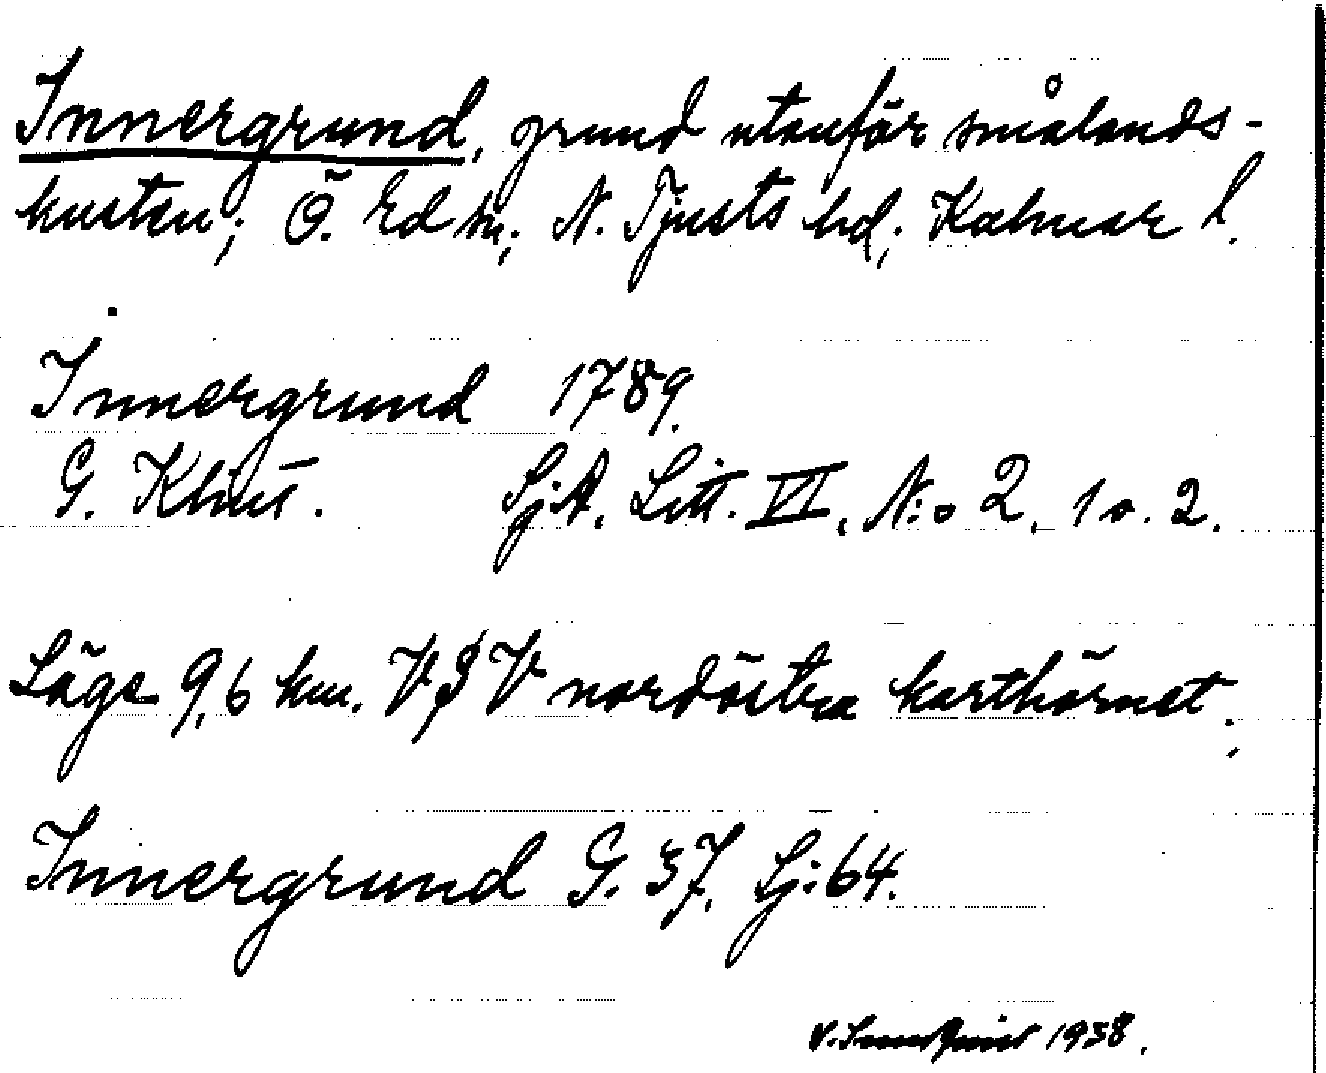 Innergrund, grund utanför smålands-
kusten; Ö. Ed sn; N. Tjusts hd; Kalmar l.
Innergrund 1789.
G. Klint. SjA. Litt. VI, N:o 2, 1 o. 2.
Läge 9,6 km. VSV nordöstra karthörnet.
Innergrund G. 37, Sj: 64.
V. 1938.